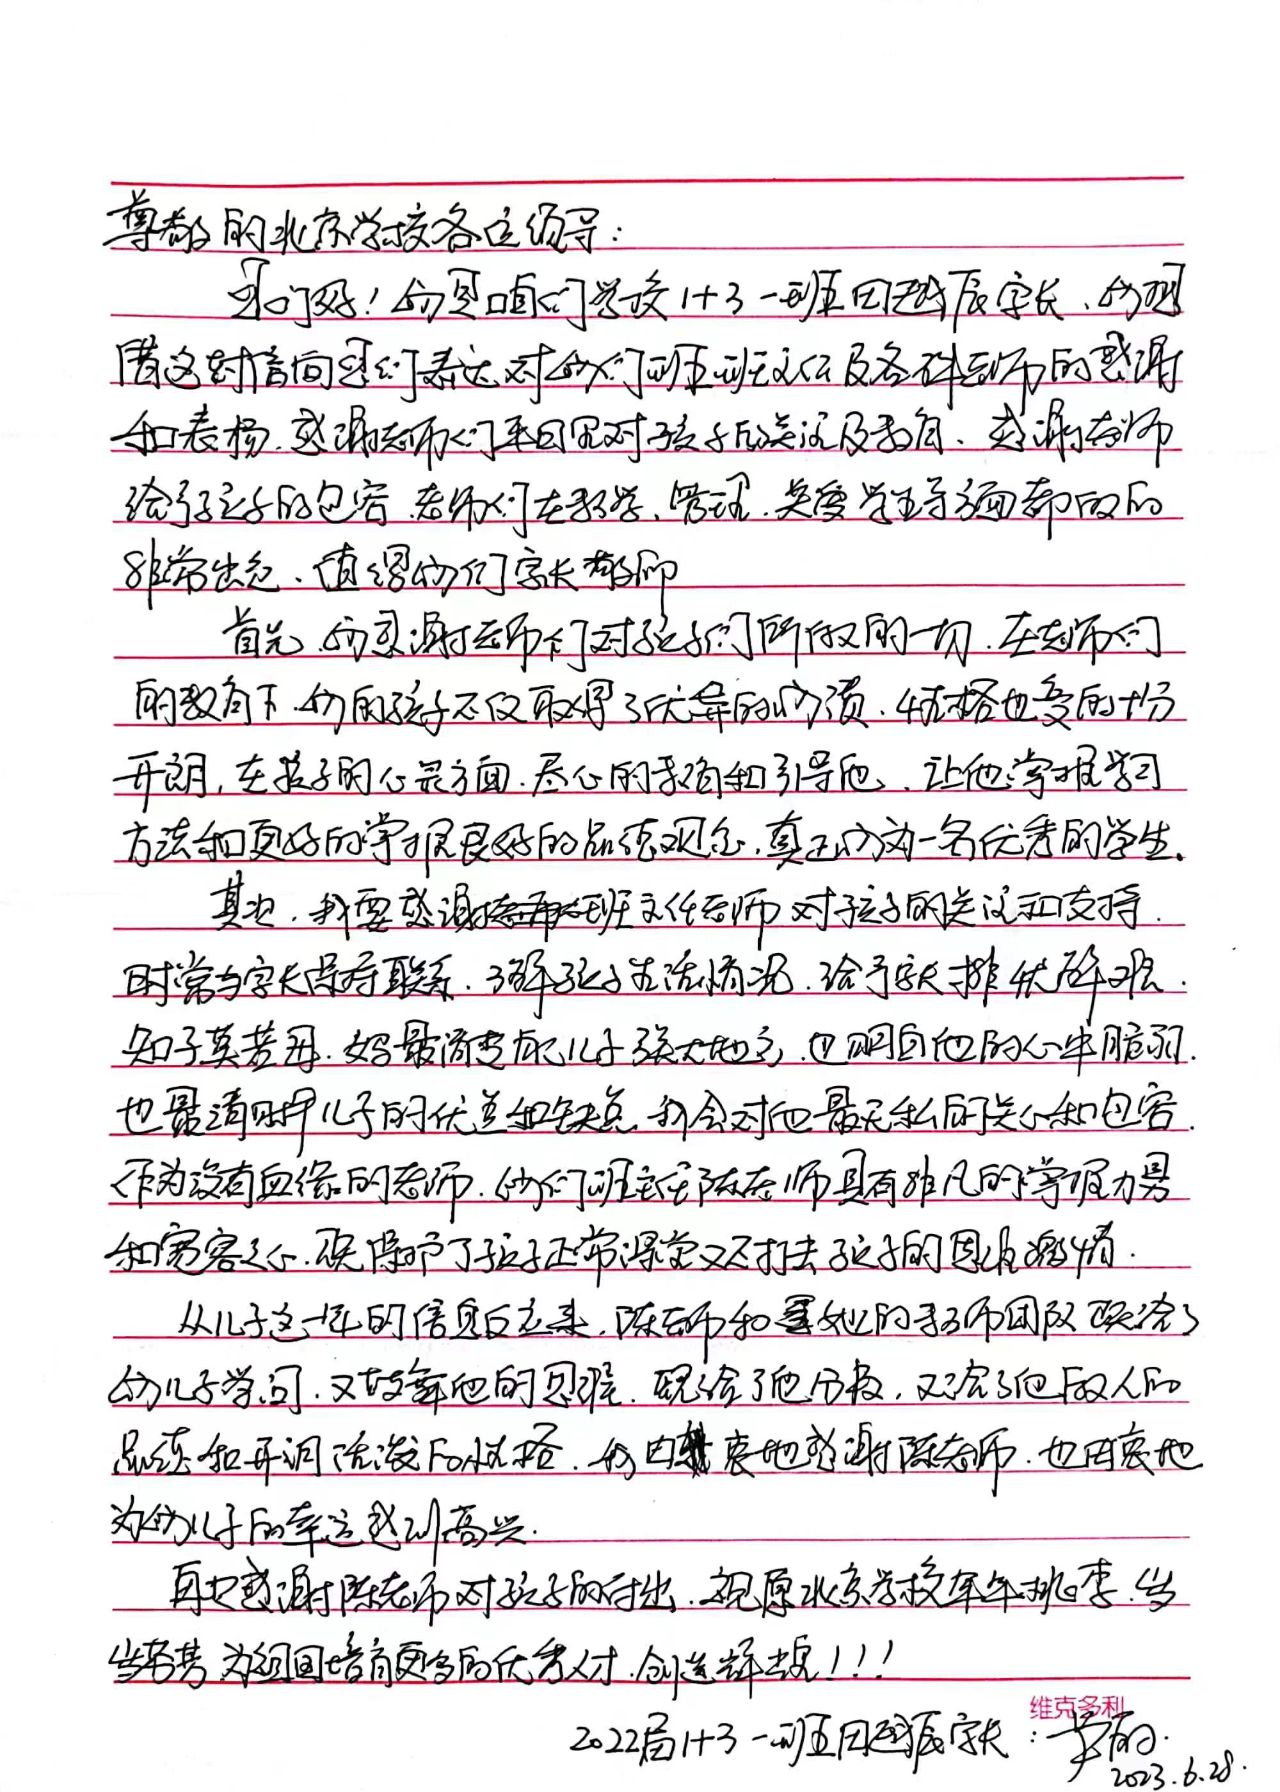 尊敬的北京学校各位领导:
你们好!我是咱们学校1+3一班田越辰家长、我想
借这封信向你们表达对我们班班主任及各科老师的感谢
和表扬.感谢老师们平日里对孩子的关注及教育、感谢老师
给予孩子的包容.老师们在教学、管理、关爱学生等方面都做的
非常出色、值得我们家长敬仰
首先、我要感谢老师们对孩子们所做的一切.在老师们
的教育下.我的孩子不仅取得了优异的成绩.性格也变的十分
开朗,在孩子的心灵方面.尽心的教育和引导他、让他掌握学习
方法和更好的掌握良好的品德观念,真正成为一名优秀的学生.
其次.我要感谢班主任老师对孩子的关注和支持.
时常与家长保持联系.了解孩子生活情况.给予家长排忧解难.
知子莫若母.妈最清楚儿子强大地方,也明白他的心中脆弱.
也最清晰儿子的优差和缺点.我会对他最无私的关心和包容.
作为没有血缘的老师.我们班主任陈老师具有非凡的掌握力
和宽容之心.既保护了孩子正常课堂又不打击孩子的思维激情.
从儿子这一年的信息反应来.陈老师和她的教师团队既给了
我儿子学问.又鼓舞他的思维.既给了他分数,又给了他做人的
品德和开朗活泼的性格.我由衷地感谢陈老师.也由衷地
为我儿子的幸运感到高兴.
再次感谢陈老师对孩子的付出.祝愿北京学校年年桃李.岁
岁芬芳.为祖国培育更多的优秀人才.创造辉煌!!!
维克多利
2022届1+3一班田越辰家长:
2023.6.28.